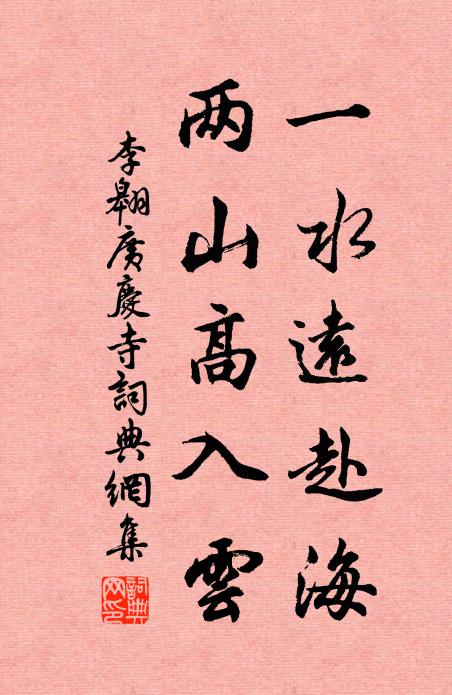 一水遠赴海
两山高入雲
李翱廣慶寺詞典網集
詞典
网印